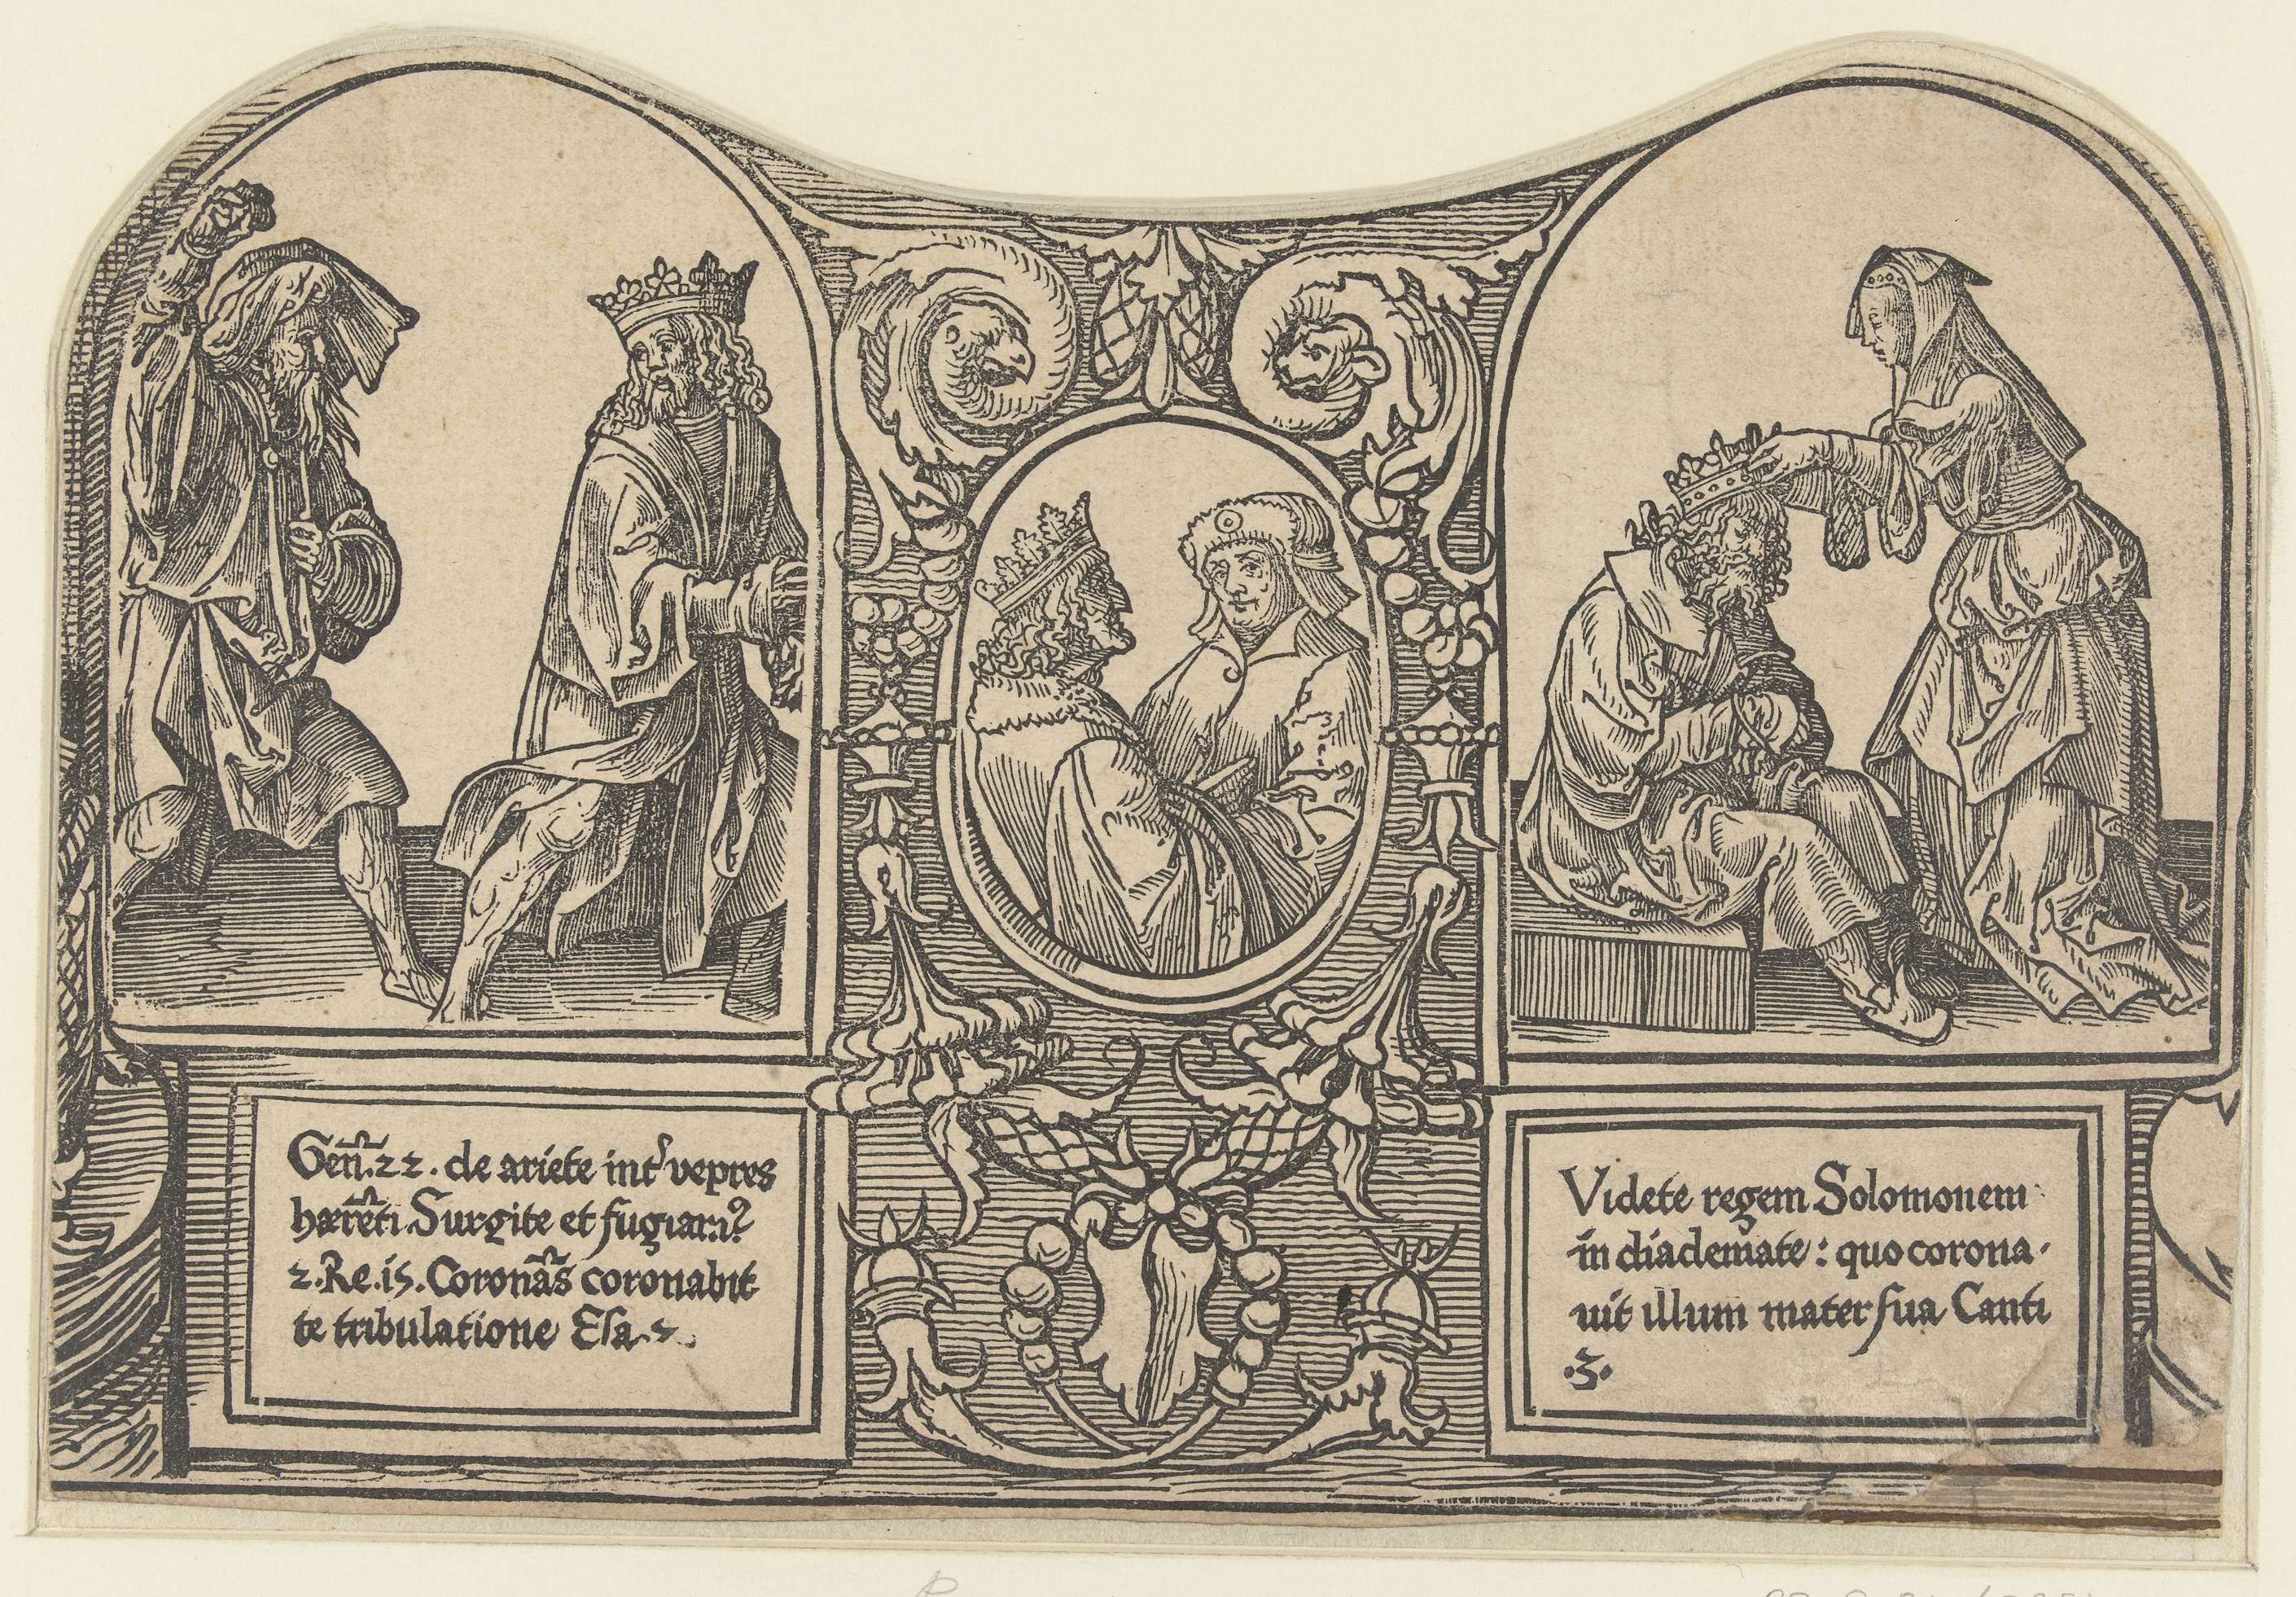 Geñ.22. de ariete int̉ vepres
hærẽti. Surgite et fugiam?
2.Re.15. Coronãs coronabit
te tribulatione Esa.
Videte regem Solomonem
in diademate : quo corona·
uit illum mater sua Canti
·3·